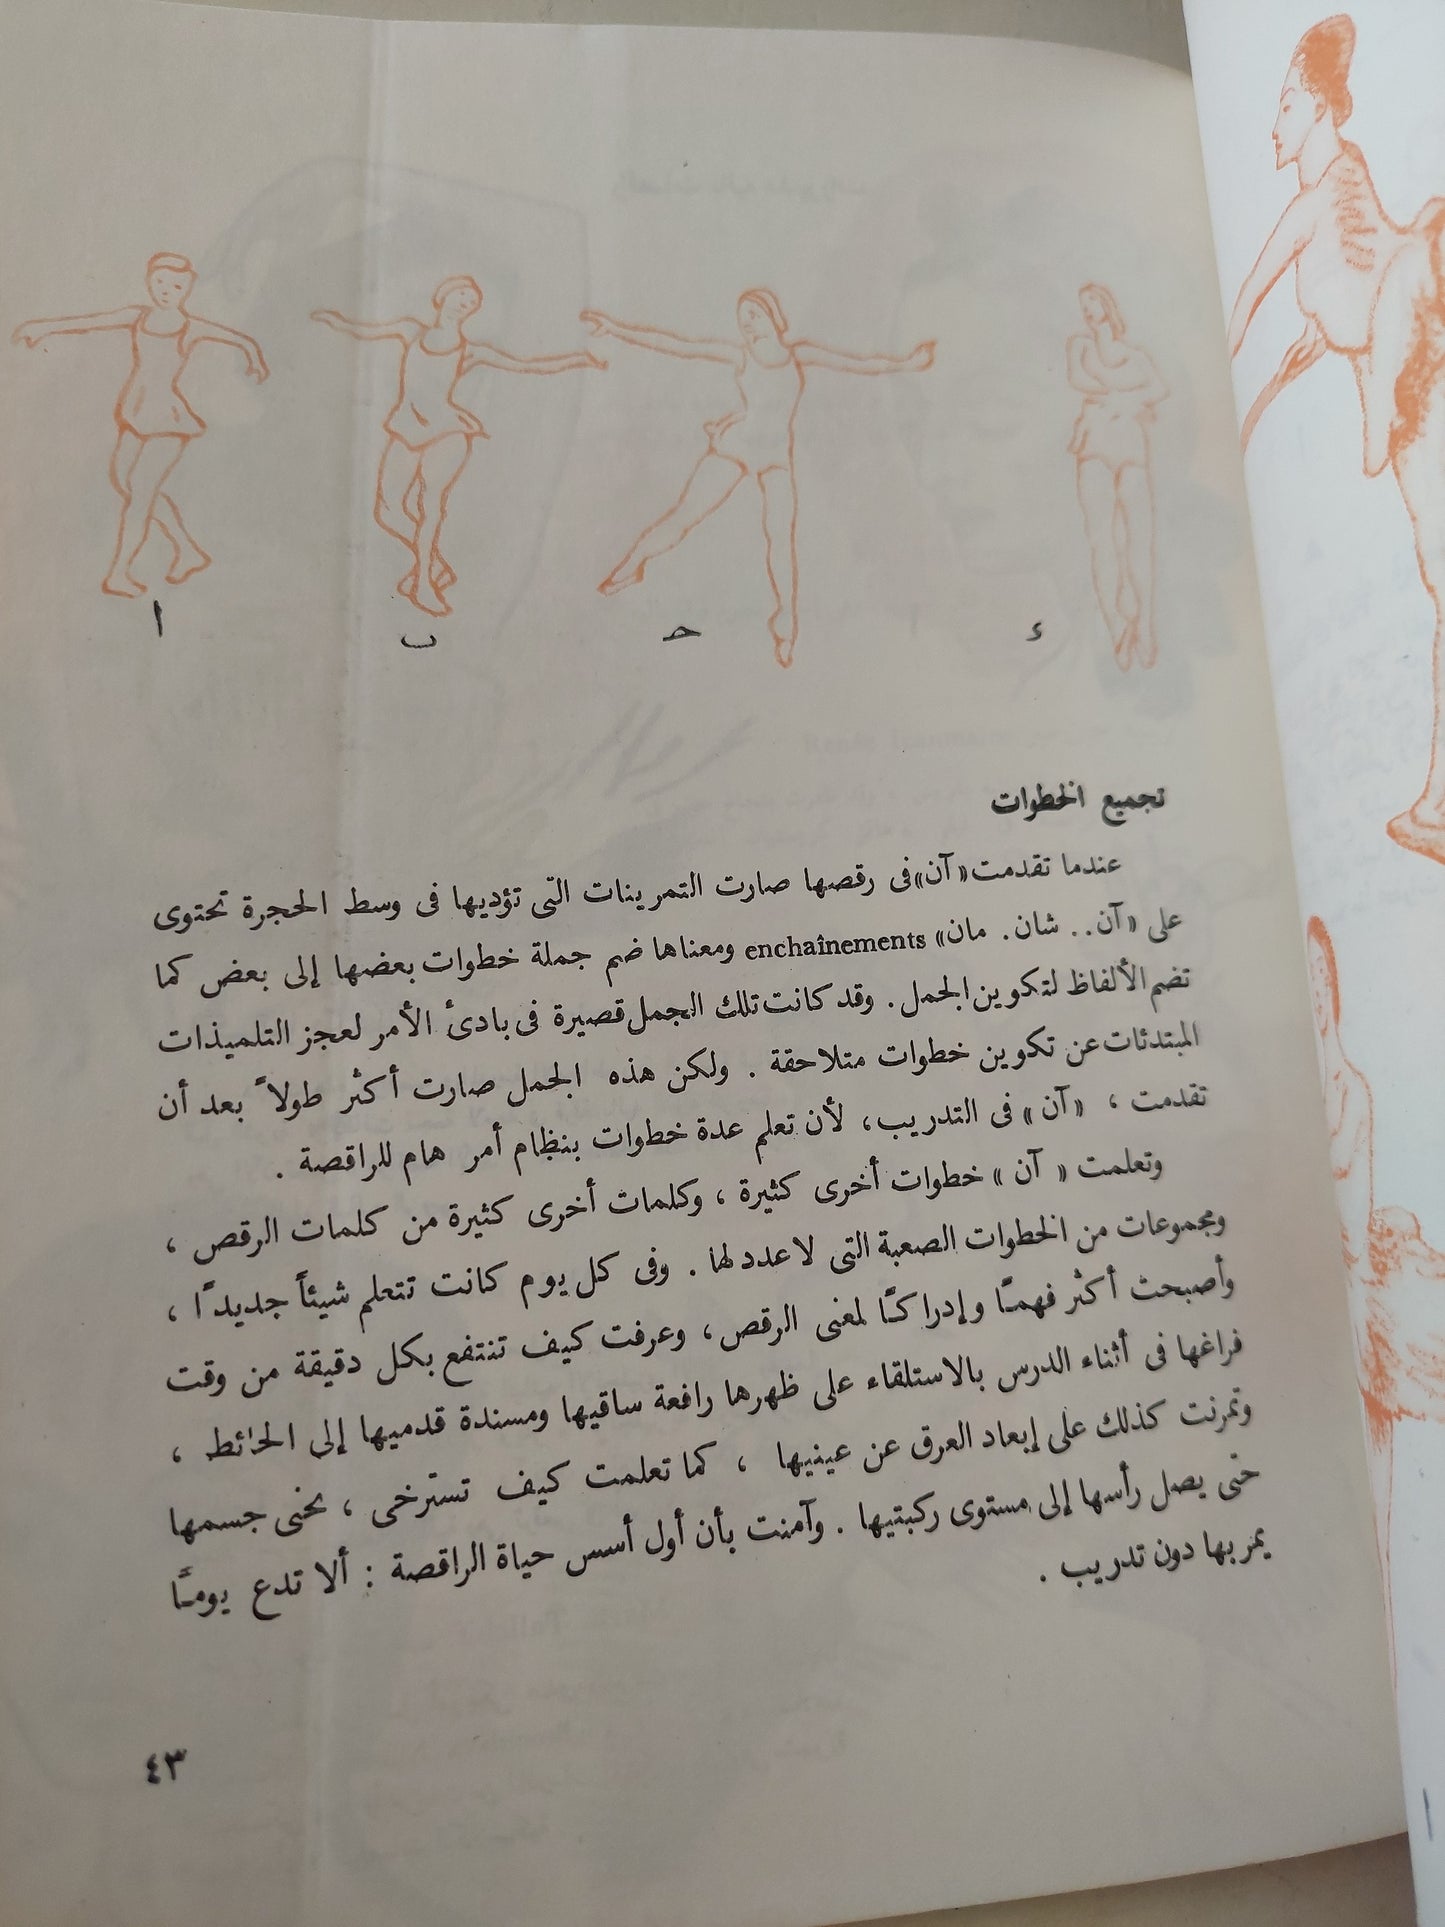 ا
ب
حـ
ء
تجميع الخطوات
عندما تقدمت «آن» فى رقصها صارت التمرينات التى تؤديها فى وسط الحجرة تحتوى
على «آن.. شان. مان» enchaînements ومعناها ضم جملة خطوات بعضها إلى بعض كما
تضم الألفاظ لتكوين الجمل. وقد كانت تلك الجمل قصيرة فى بادئ الأمر لعجز التلميذات
المبتدئات عن تكوين خطوات متلاحقة. ولكن هذه الجمل صارت أكثر طولاً بعد أن
تقدمت، «آن» فى التدريب، لأن تعلم عدة خطوات بنظام أمر هام للراقصة.
وتعلمت «آن» خطوات أخرى كثيرة، وكلمات أخرى كثيرة من كلمات الرقص،
ومجموعات من الخطوات الصعبة التى لا عدد لها. وفى كل يوم كانت تتعلم شيئاً جديداً،
وأصبحت أكثر فهمـًا وإدراكـًا لمعنى الرقص، وعرفت كيف تنتفع بكل دقيقة من وقت
فراغها فى أثناء الدرس بالاستلقاء على ظهرها رافعة ساقيها ومسندة قدميها إلى الحائط،
وتمرنت كذلك على إبعاد العرق عن عينيها، كما تعلمت كيف تسترخى، بحنى جسمها
حتى يصل رأسها إلى مستوى ركبتيها. وآمنت بأن أول أسس حياة الراقصة: ألا تدع يومـًا
يمر بها دون تدريب.
٤٣